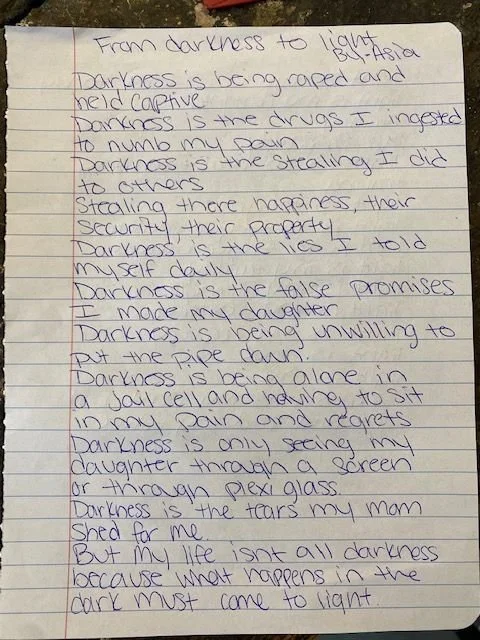 From darkness to light
By: Asia
Darkness is being raped and
held captive
Darkness is the drugs I ingested
to numb my pain
Darkness is the stealing I did
to others
Stealing there happiness, their
security, their property
Darkness is the lies I told
myself daily
Darkness is the false promises
I made my daughter
Darkness is being unwilling to
put the pipe down.
Darkness is being alone in
a jail cell and having to sit
in my pain and regrets
Darkness is only seeing my
daughter through a screen
or through plexi glass.
Darkness is the tears my mom
shed for me.
But my life isnt all darkness
because what happens in the
dark must come to light.